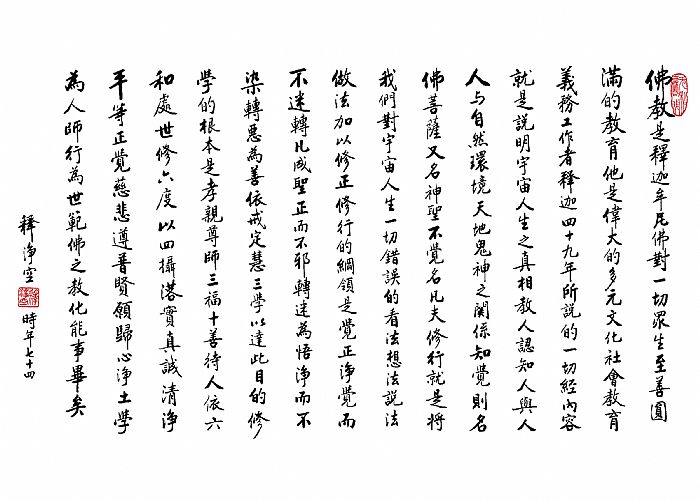 佛教是釋迦牟尼佛對一切眾生至善圓
滿的教育他是偉大的多元文化社會教育
義務工作者釋迦四十九年所說的一切經內容
就是說明宇宙人生之真相教人認知人與人
人与自然環境天地鬼神之関係知覺則名
佛菩薩又名神聖不覺名凡夫修行就是將
我們對宇宙人生一切錯誤的看法想法說法
做法加以修正修行的綱領是覺正淨覺而
不迷轉凡成聖正而不邪轉迷為悟淨而不
染轉惡為善依戒定慧三學以達此目的修
學的根本是孝親尊師三福十善待人依六
和處世修六度以四攝落實真誠清淨
平等正覺慈悲遵普賢願歸心淨土學
為人師行為世範佛之教化能事畢矣
釋淨空
時年七十四